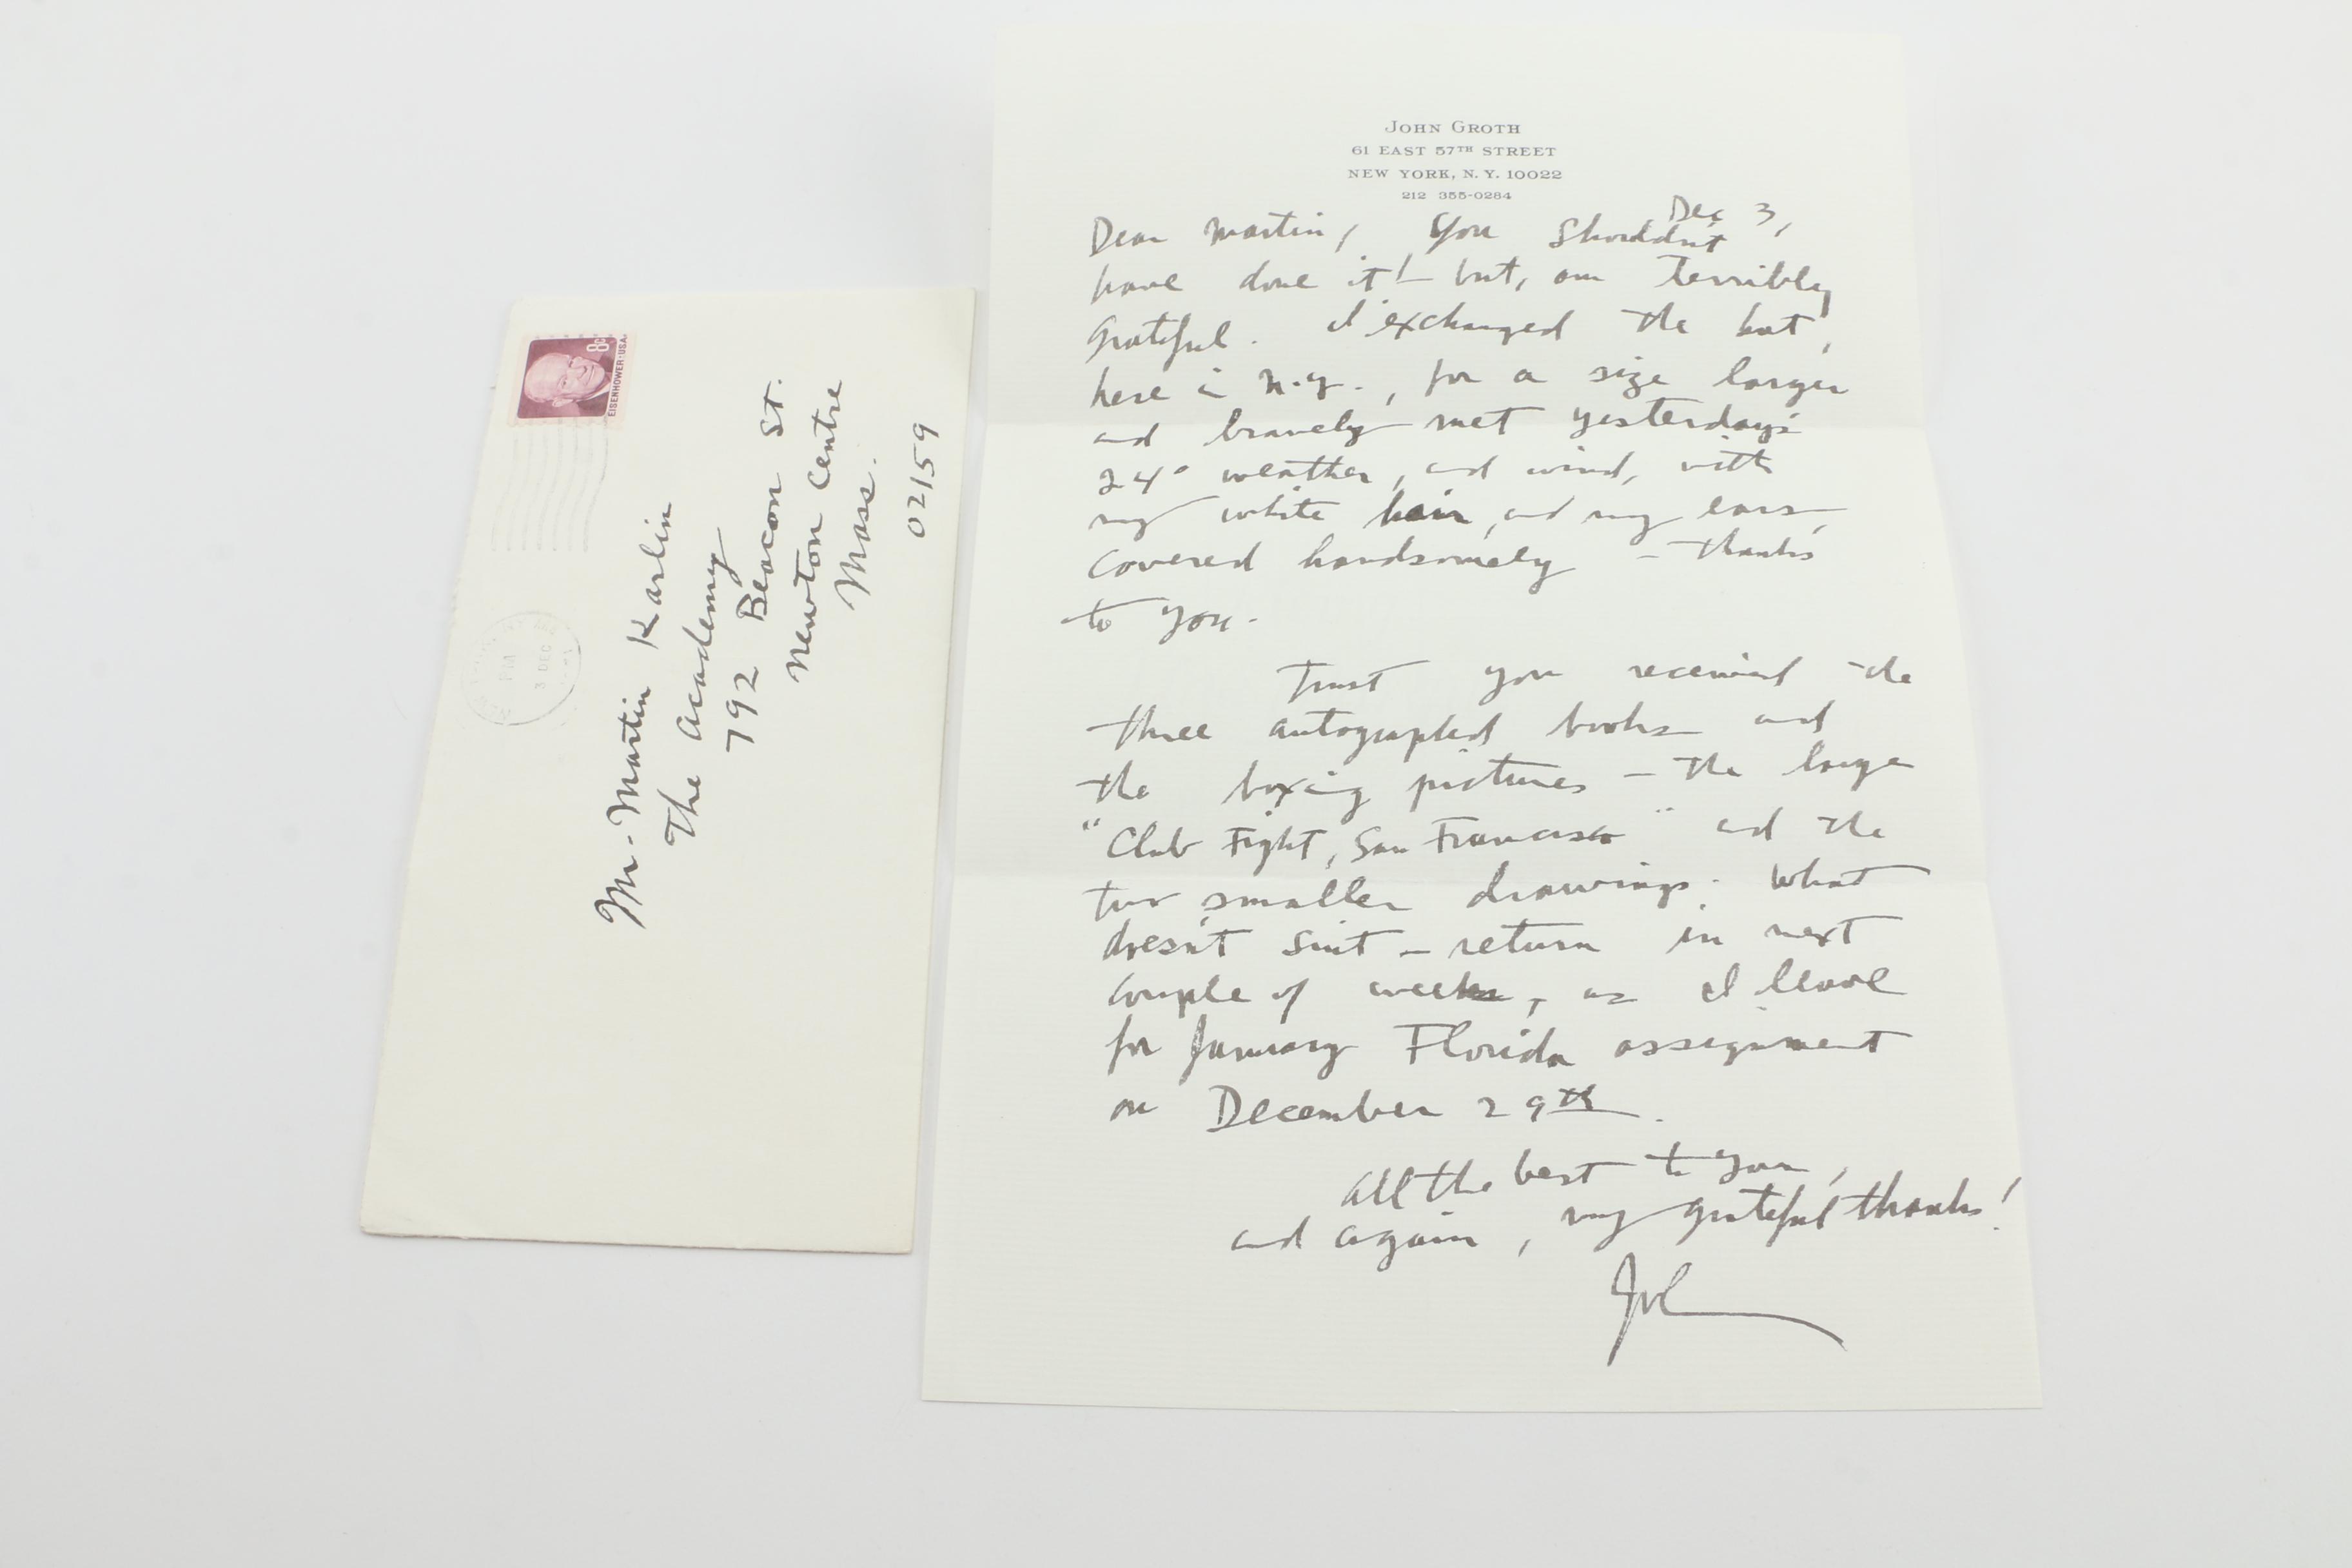 8c
EISENHOWER·USA
PM
3 DEC
Mr. Martin Karlin
The Academy
792 Beacon St.
Newton Centre
Mass.
02159
JOHN GROTH
61 EAST 57TH STREET
NEW YORK, N.Y. 10022
212 355-0284
Dec 3,
Dear Martin, You shouldn't
have done it! – but, am terribly
grateful. I exchanged the hat,
here in N.Y., for a size larger
and bravely met yesterday's
24° weather, and wind, with
my white hair, and my ears
covered handsomely – thanks
to you.
Trust you received the
three autographed books and
the boxing pictures – the large
"Club Fight, San Francisco" and the
two smaller drawings. What
doesn't suit – return in next
couple of weeks, as I leave
for January Florida assignment
on December 29th.
All the best to you,
and again, my grateful thanks!
John